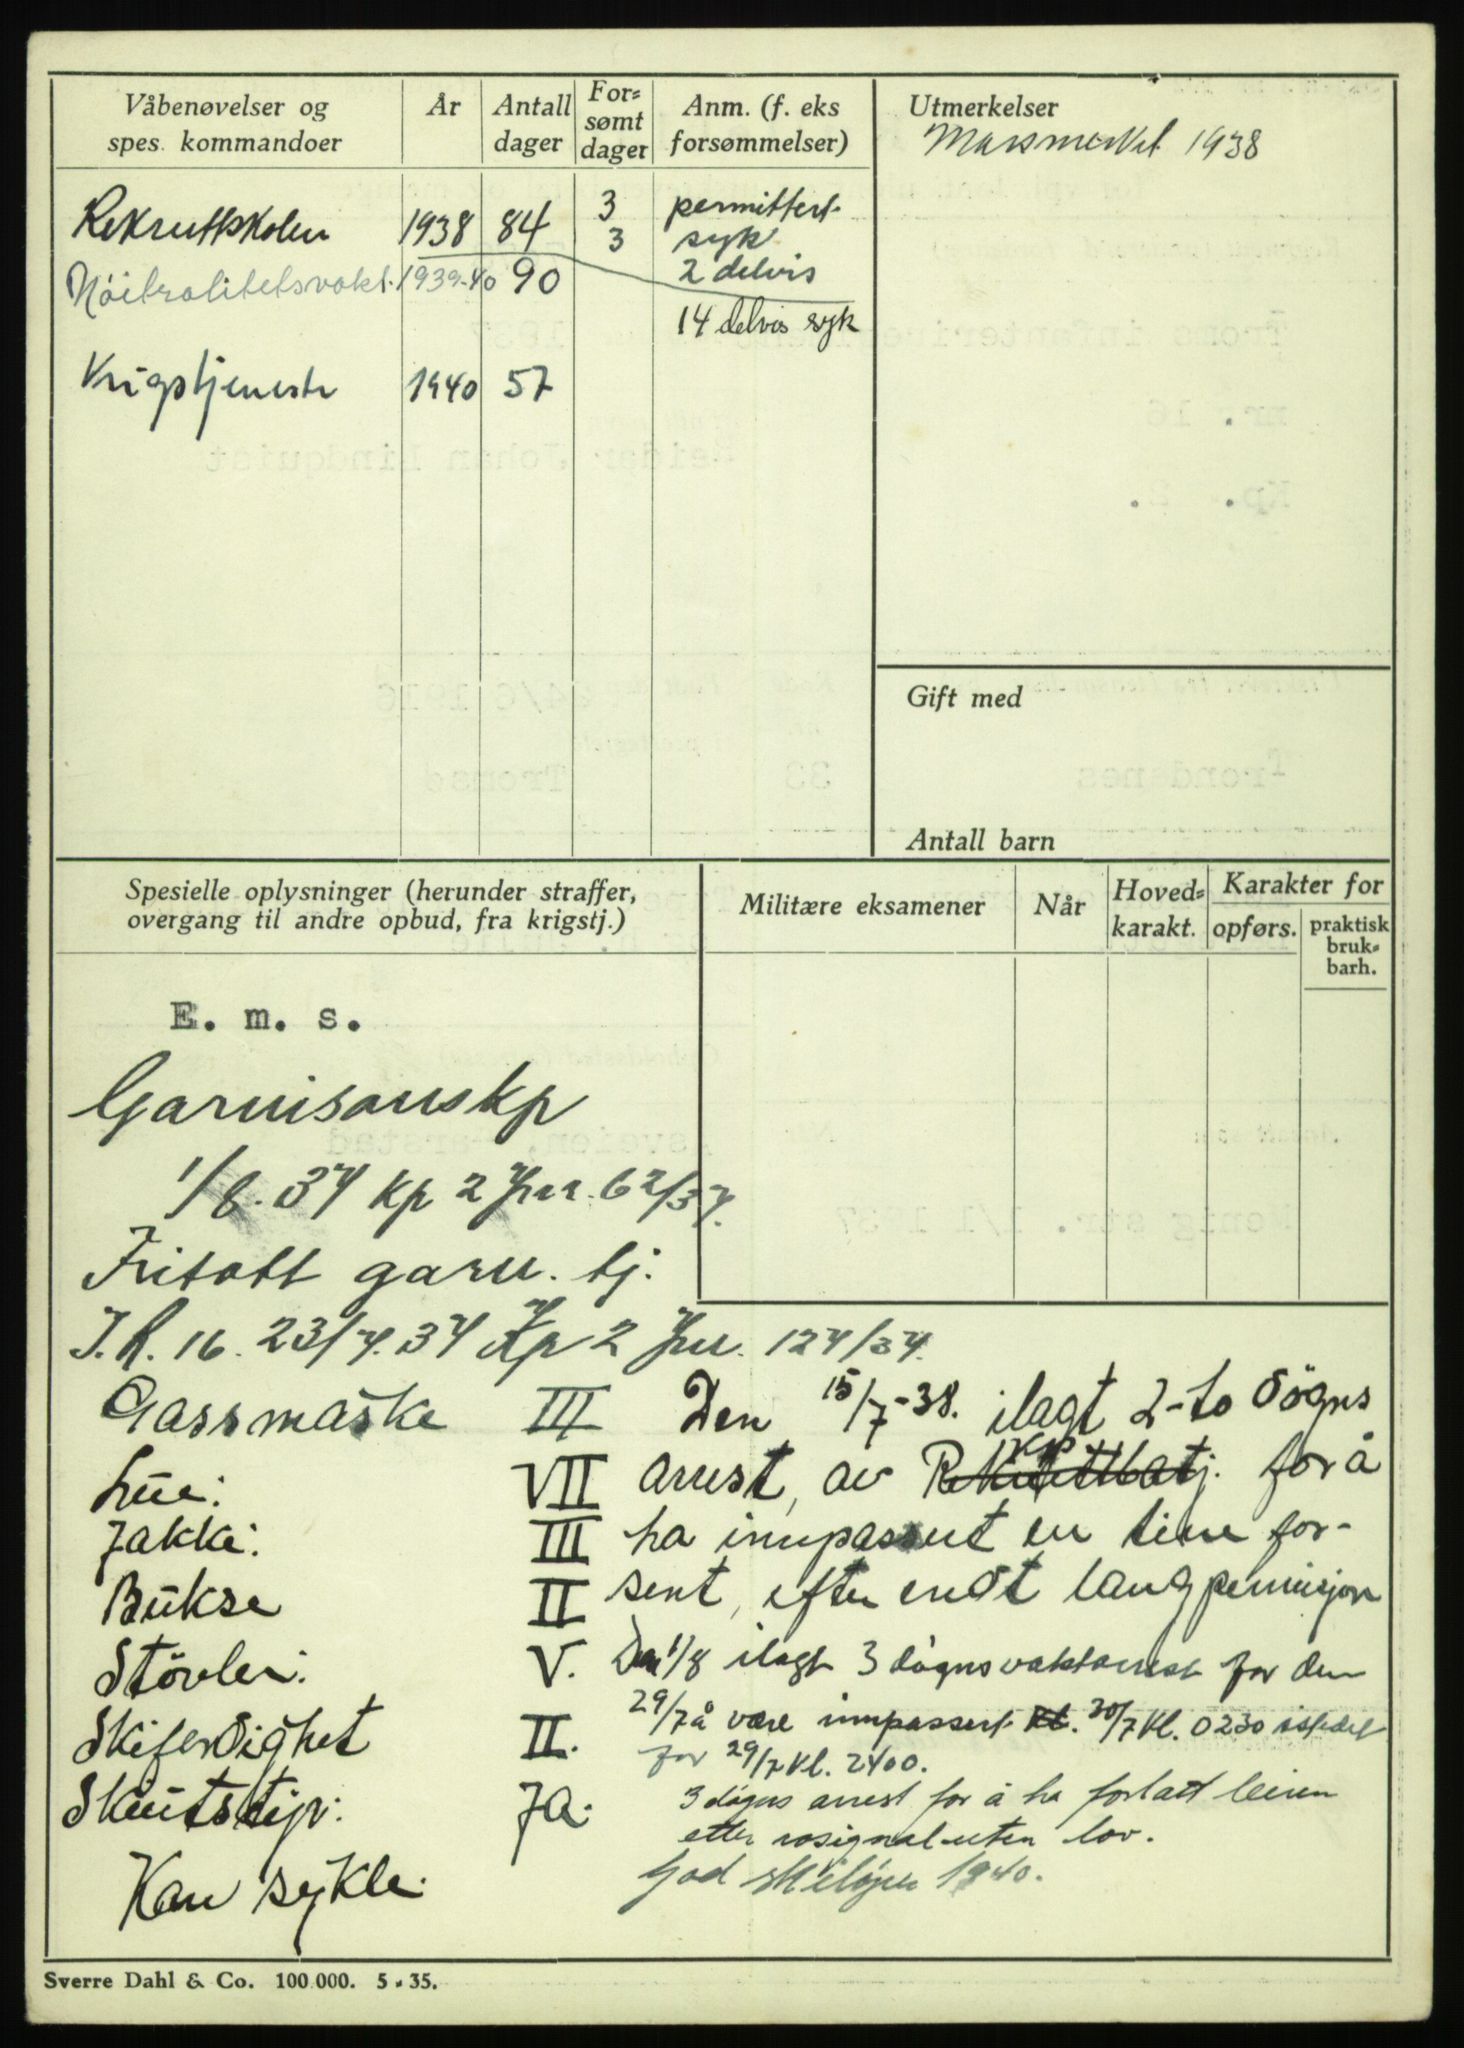 Våbenøvelser og
spes. kommandoer
År
Antall
dager
For=
sømt
dager
Anm. (f. eks
forsømmelser)
Rekruttskolen 1938 84 3 permittert
3 syk
Nöitralitetsvakt. 1939-40 90 2 delvis
14 delvis syk
Krigstjeneste 1940 57
Utmerkelser
Marsmerket 1938
Gift med
Antall barn
Spesielle oplysninger (herunder straffer,
overgang til andre opbud, fra krigstj.)
Militære eksamener
Når
Hoved=
karakt.
Karakter for
opførs.
praktisk
bruk=
barh.
E. m. s.
Garnisonskp
1/8. 37 kp 2 Jnr. 62/37.
Fritatt garn. tj.
I.R. 16. 23/7. 37 Kp 2 Jnr. 127/37.
Gassmaske III
Lue: VII
Jakke: III
Bukse II
Støvler: V.
Skiferdighet II.
Skiutstyr: Ja.
Kan sykle.
Den 15/7-38. ilagt 2-to døgns
arrest, av Rekruttbatj. for å
ha innpassert en time for-
sent, efter endt langpermisjon
Den 1/8 ilagt 3 døgns vaktarrest for den
29/7 å være innpassert kl. 30/7 kl. 0230 istedet
for 29/7 kl. 2400.
3 døgns arrest for å ha forlatt leiren
etter rosignal uten lov.
God skiløper 1940.
Sverre Dahl & Co. 100.000. 5 - 35.